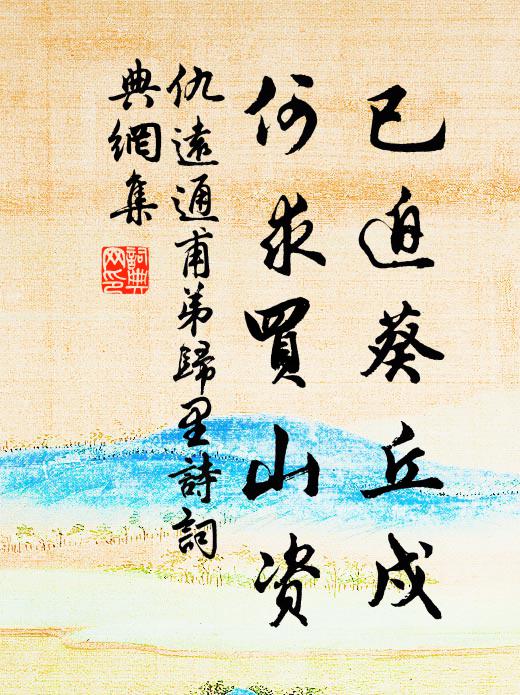 已迫葵丘戍
何求買山資
仇遠通甫弟歸里詩詞
典網集
詞典
网印